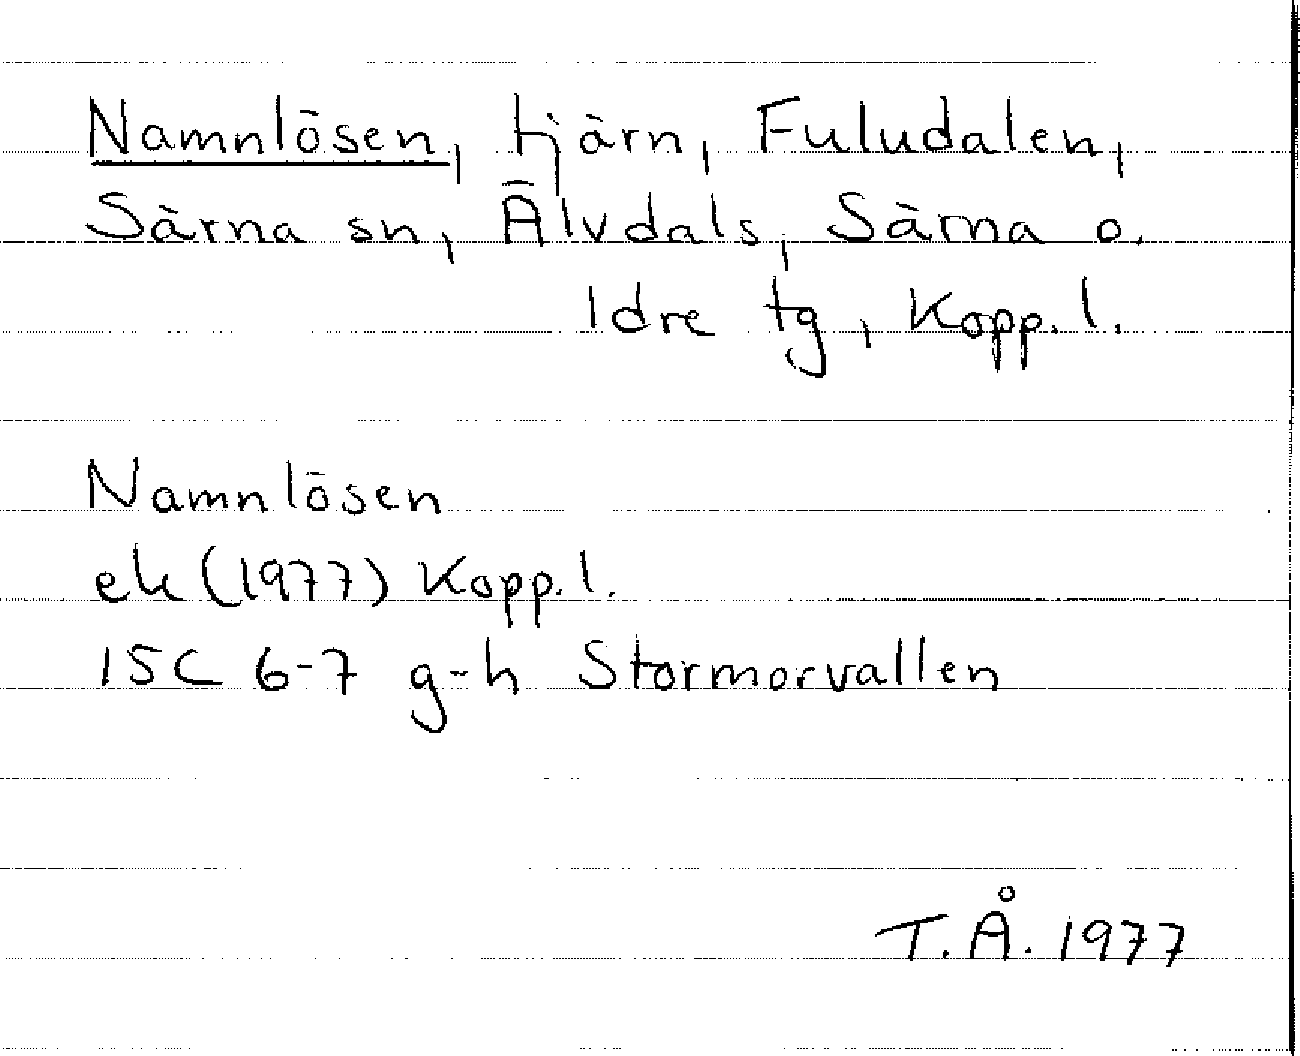 Namnlösen, tjärn, Fuludalen,
Särna sn, Älvdals, Särna o.
Idre tg, Kopp. l.
Namnlösen
ek (1977) Kopp. l.
15C 6-7 g-h Stormorvallen
T.Å. 1977